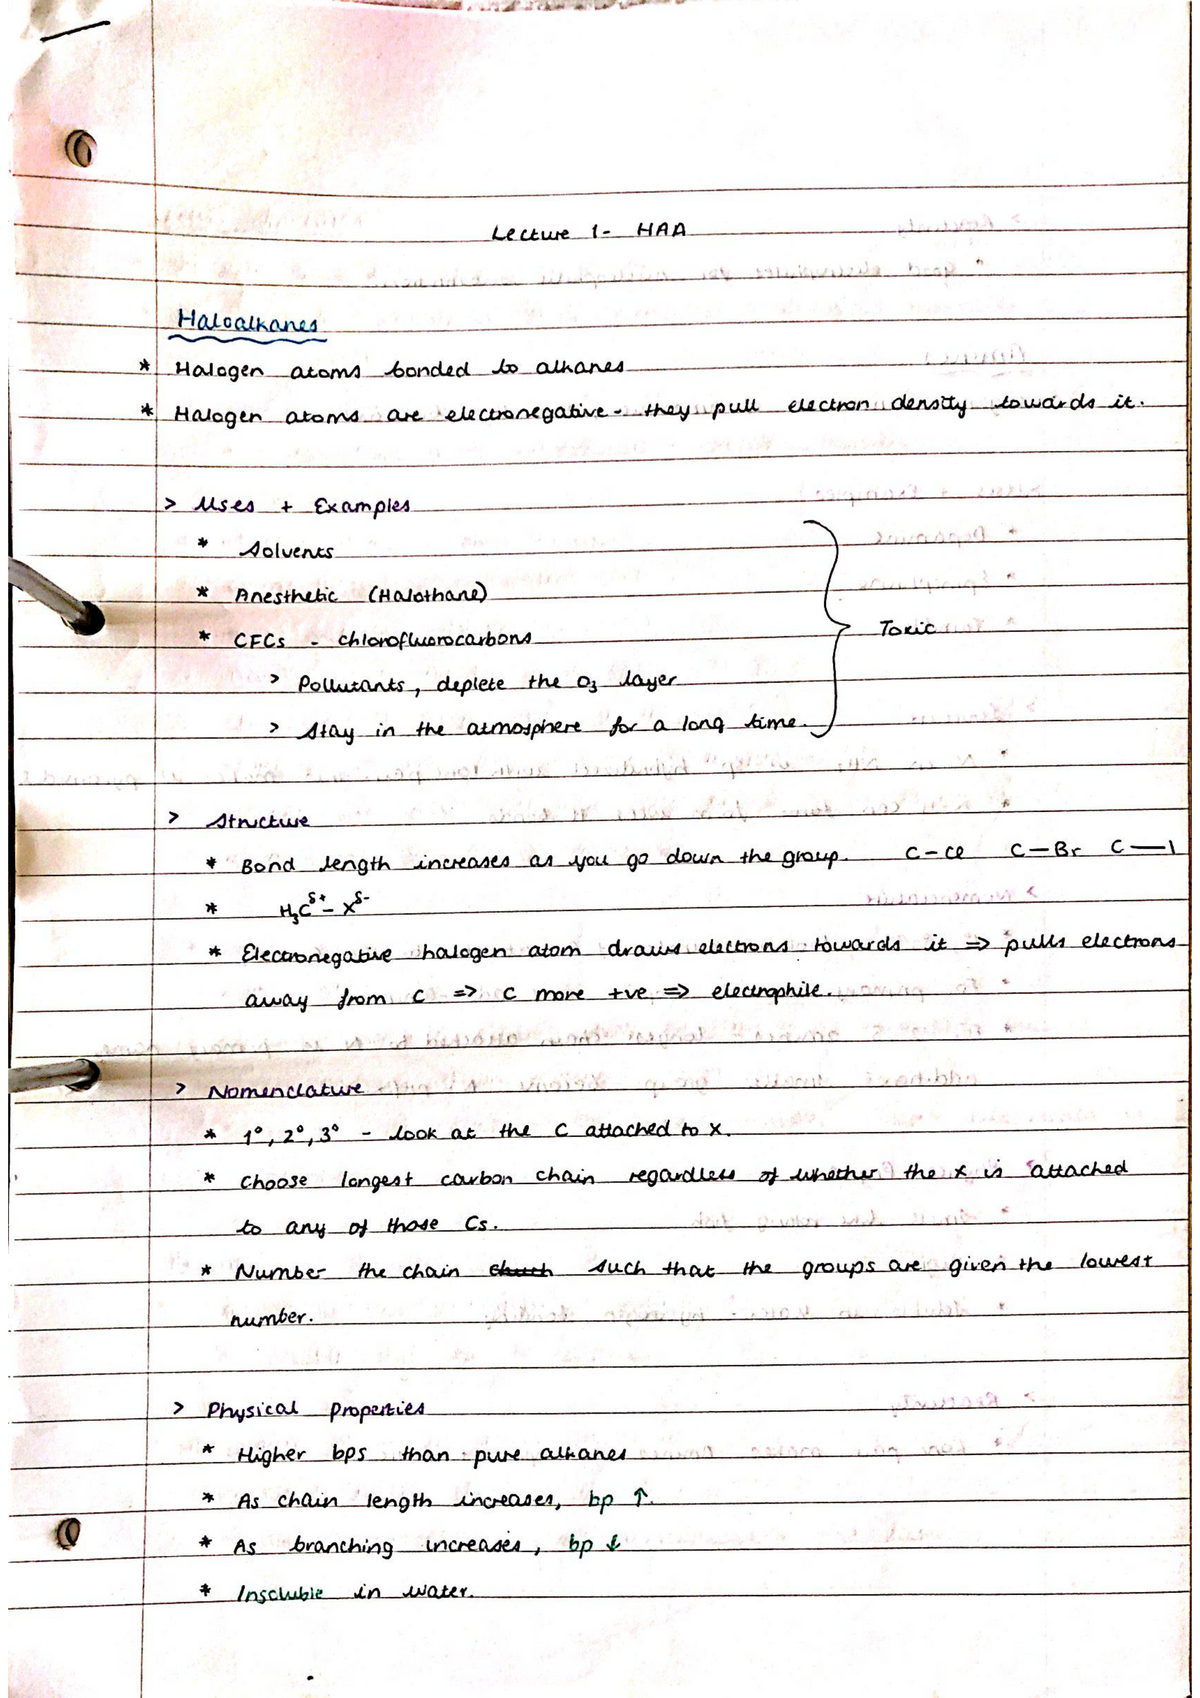 Lecture 1- HAA
Haloalkanes
* Halogen atoms bonded to alkanes
* Halogen atoms are electronegative - they pull electron density towards it.
> Uses + Examples
* Solvents
* Anesthetic (Halothane)
* CFCs - chlorofluorocarbons
Toxic
> Pollutants, deplete the O₃ layer
> Stay in the atmosphere for a long time.
> Structure
* Bond length increases as you go down the group. C-Cl C—Br C——I
* H₃Cᵟ⁺- Xᵟ⁻
* Electronegative halogen atom draws electrons towards it => pulls electrons
away from C => C more +ve => electrophile.
> Nomenclature
* 1°, 2°, 3° - look at the C attached to X.
* Choose longest carbon chain regardless of whether the X is attached
to any of those Cs.
* Number the chain such that the groups are given the lowest
number.
> Physical Properties
* Higher bps than pure alkanes
* As chain length increases, bp ↑.
* As branching increases, bp ↓
* Insoluble in water.